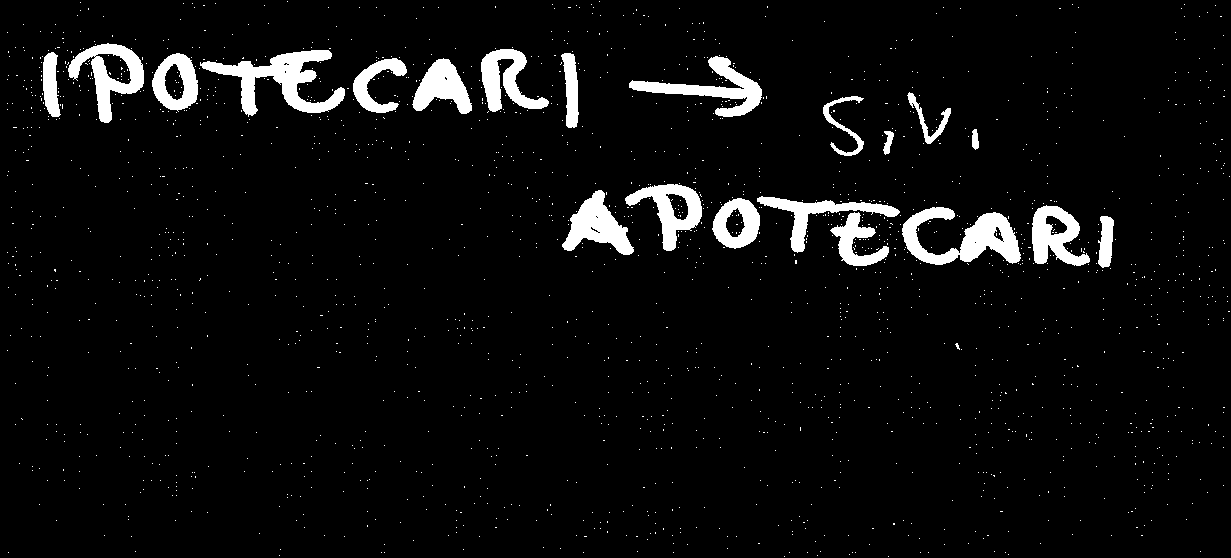 IPOTECARI → S, V,
APOTECARI